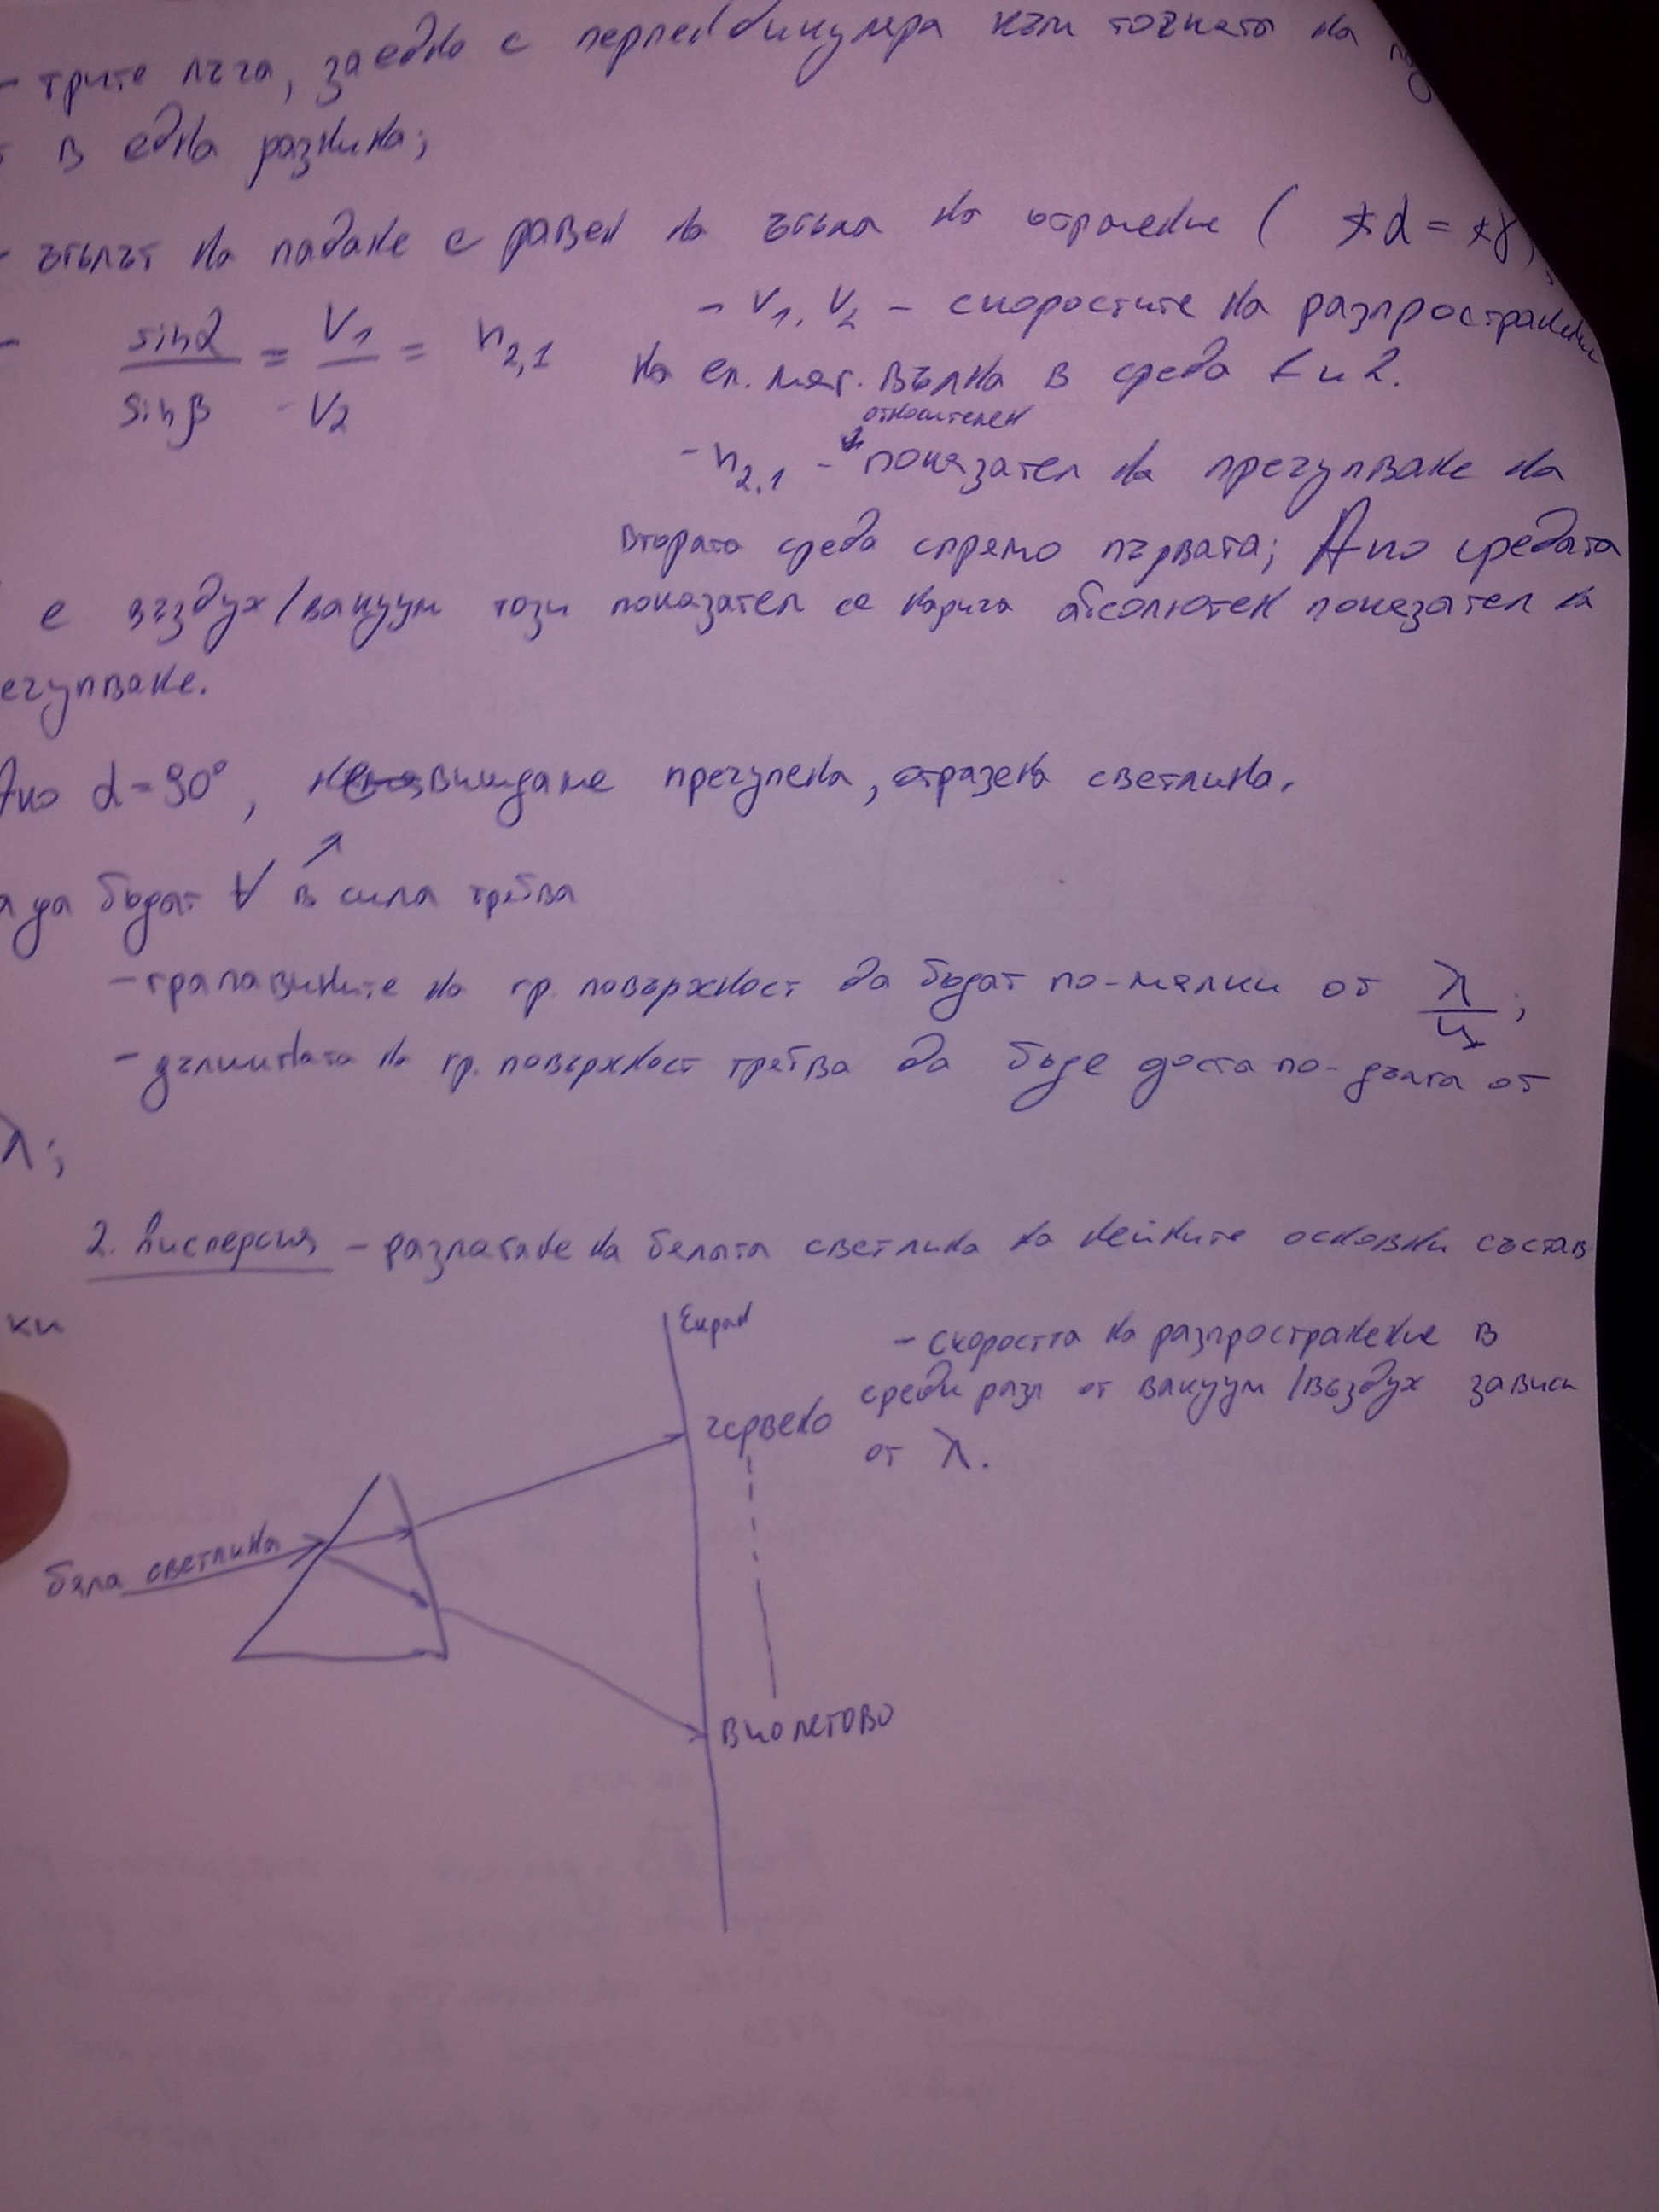 - трите лъча, заедно с перпендикуляра към точката на
в една равнина;
- ъгълът на падане е равен на ъгъла на отражение ( ∢α = ∢γ)
- sinα / sinβ = V1 / V2 = n2,1
- V1, V2 - скоростите на разпространение
на ел. маг. вълна в среда 1 и 2.
относителен
- n2,1 - показател на пречупване на
втората среда спрямо първата; Ако средата
е въздух/вакуум този показател се нарича абсолютен показател на
ечупване.
Ако α = 90°, виждаме пречупена, отразена светлина.
да бъдат ∀ в сила трябва
- грапавините на гр. повърхност да бъдат по-малки от λ/4;
- дължината на гр. повърхност трябва да бъде доста по-дълга от
λ;
2. Дисперсия - разлагане на бялата светлина на нейните основни състав
ки
Екран
- скоростта на разпространение в
среди разл от вакуум/въздух зависи
от λ.
червено
бяла светлина
виолетово